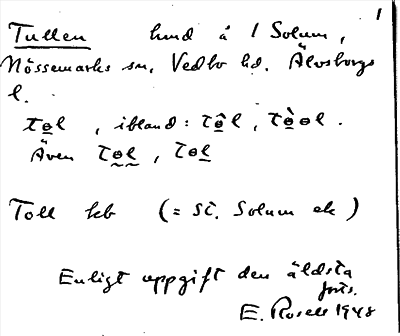 1
Tullen hmd å 1 Solum,
Nössemarks sn, Vedbo hd. Älvsborgs
l.
tɵl, ibland: tɵ̂l, tɵ̀ɵl.
Även tɵl, tɵl
Toll kb (= St. Solum ek)
Enligt uppgift den äldsta
E. Rosell 1948